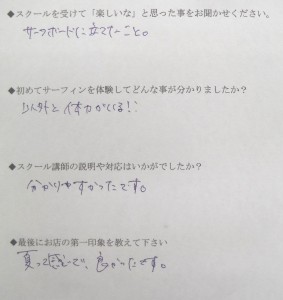 ◆スクールを受けて「楽しいな」と思った事をお聞かせください。
サーフボードに立てたこと。
◆初めてサーフィンを体験してどんな事が分かりましたか？
以外と体力がいる!!
◆スクール講師の説明や対応はいかがでしたか？
分かりやすかったです。
◆最後にお店の第一印象を教えて下さい
夏って感じで、良かったです。